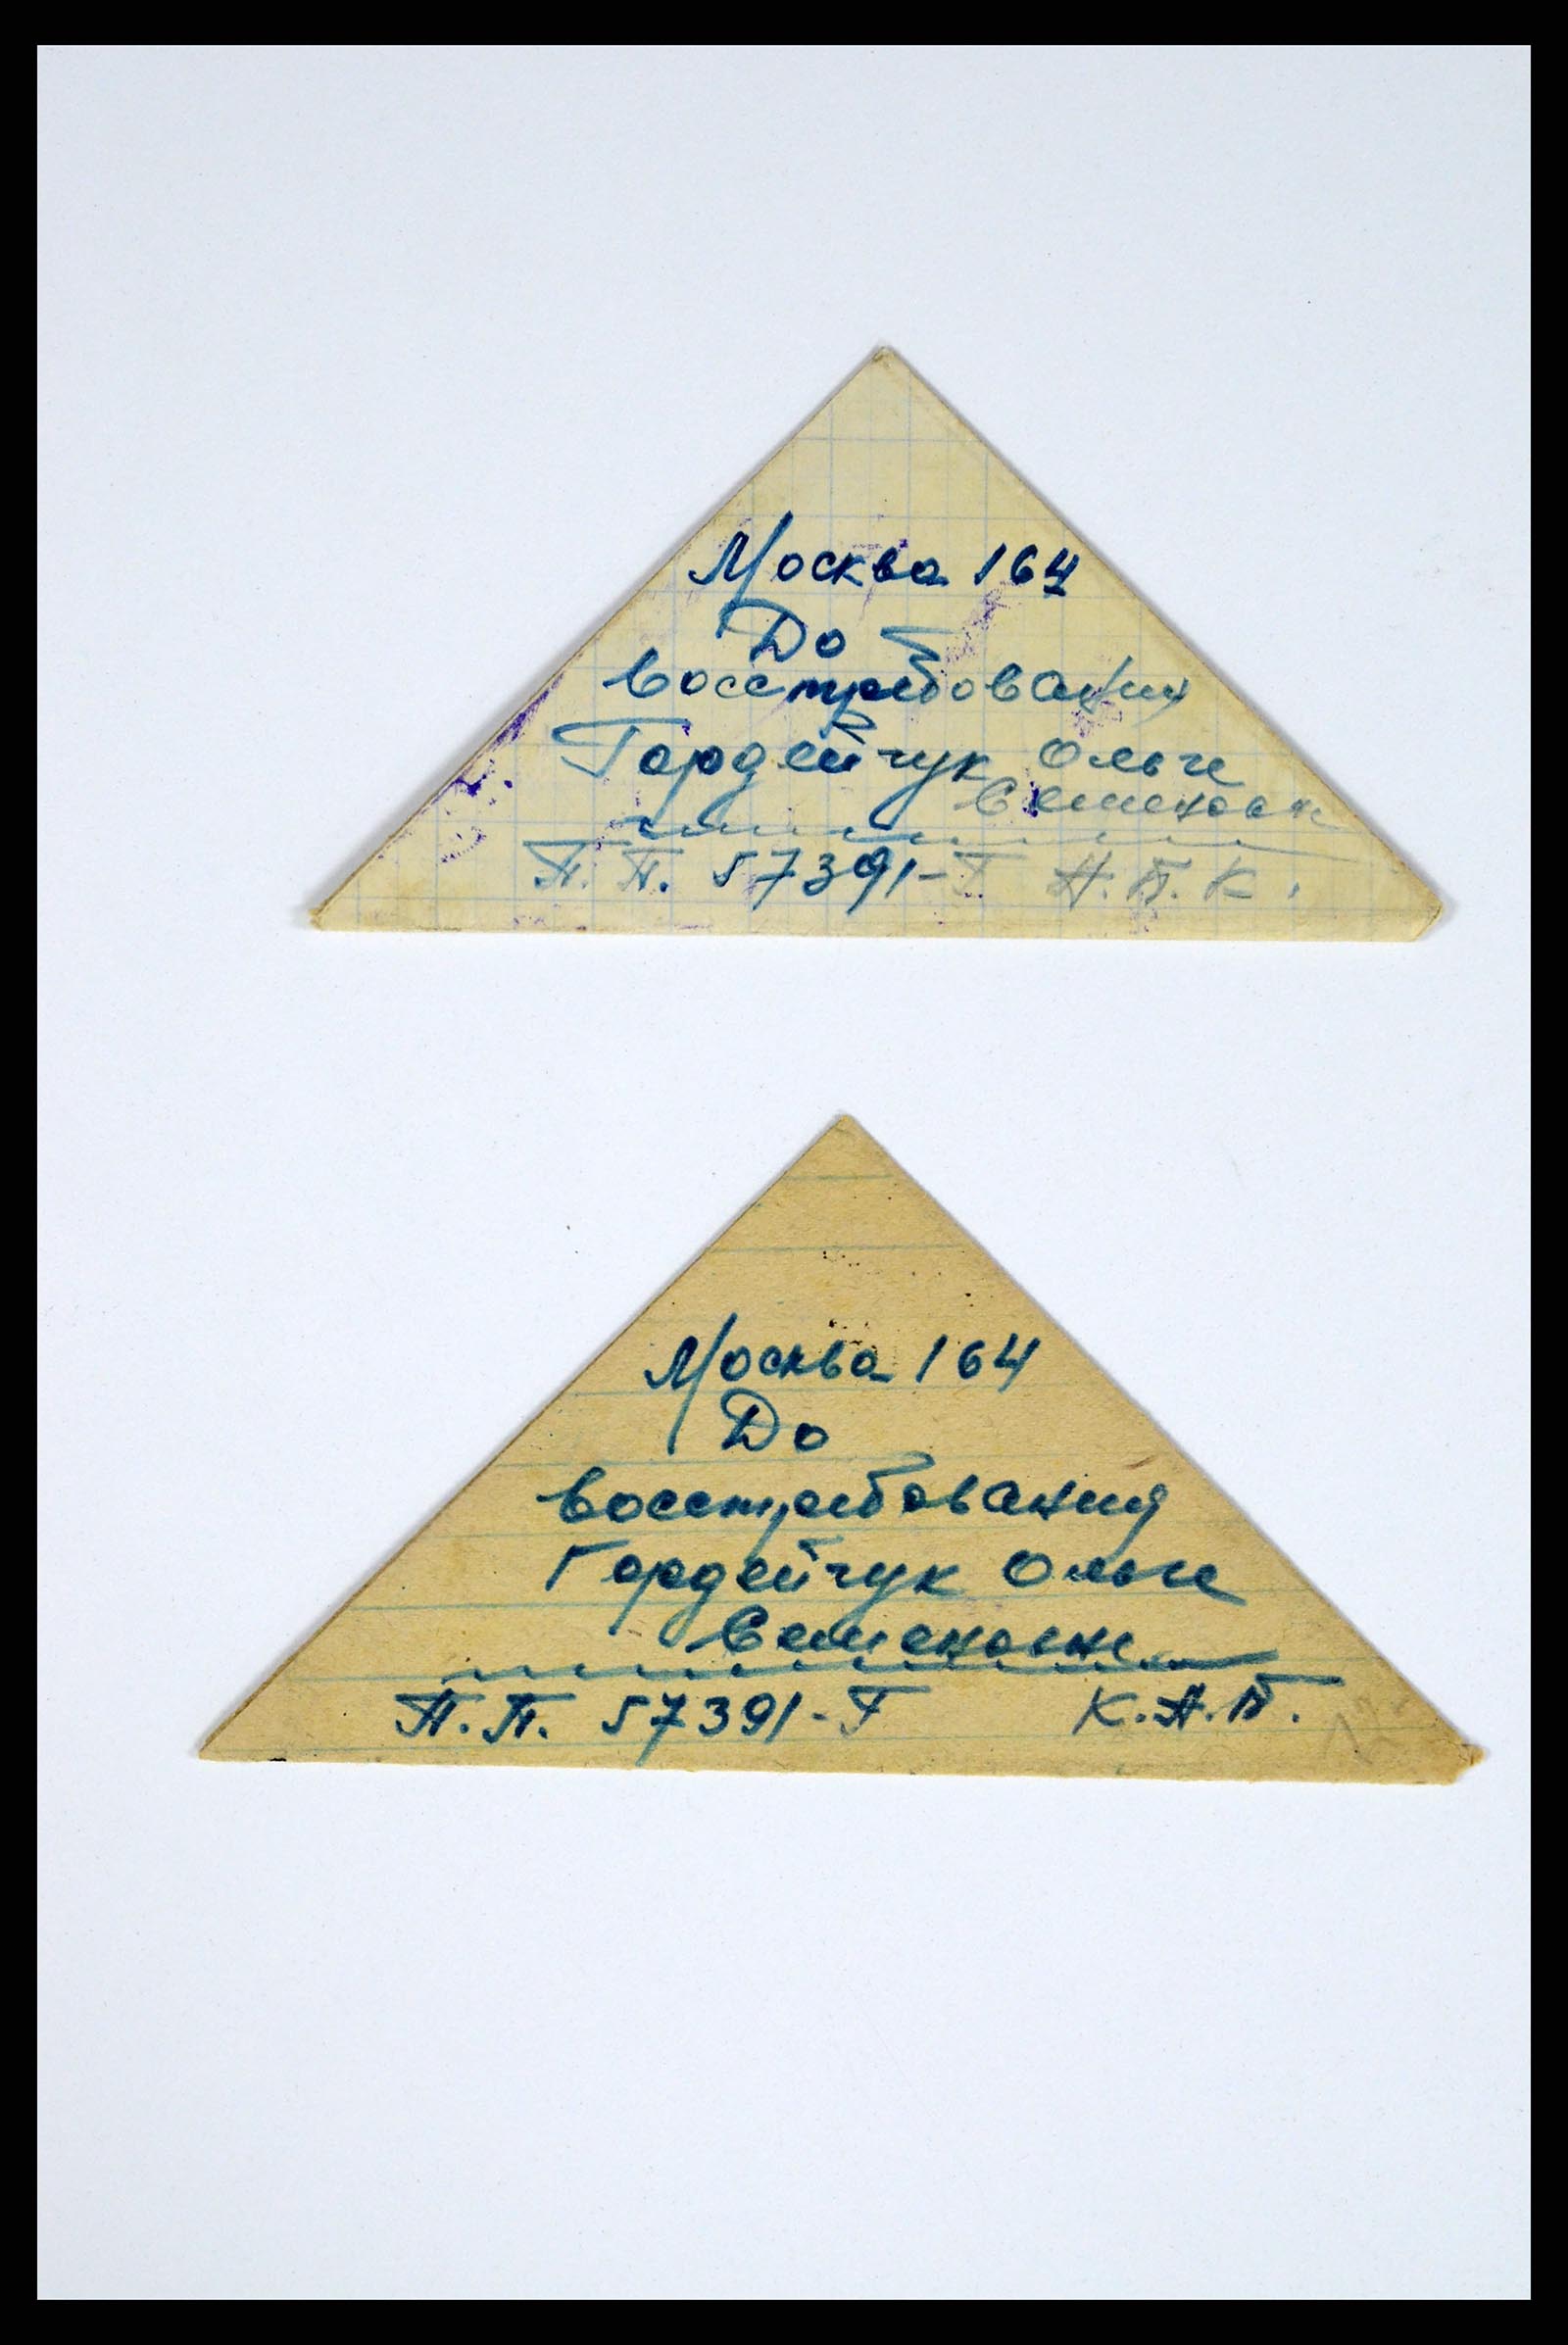 Москва 164
До
востребования
Гордейчук Ольге
Семеновне
П.П. 57391-Г А.П.К.
Москва 164
До
востребования
Гордейчук Ольге
Семеновне
П.П. 57391-Г К.А.П.